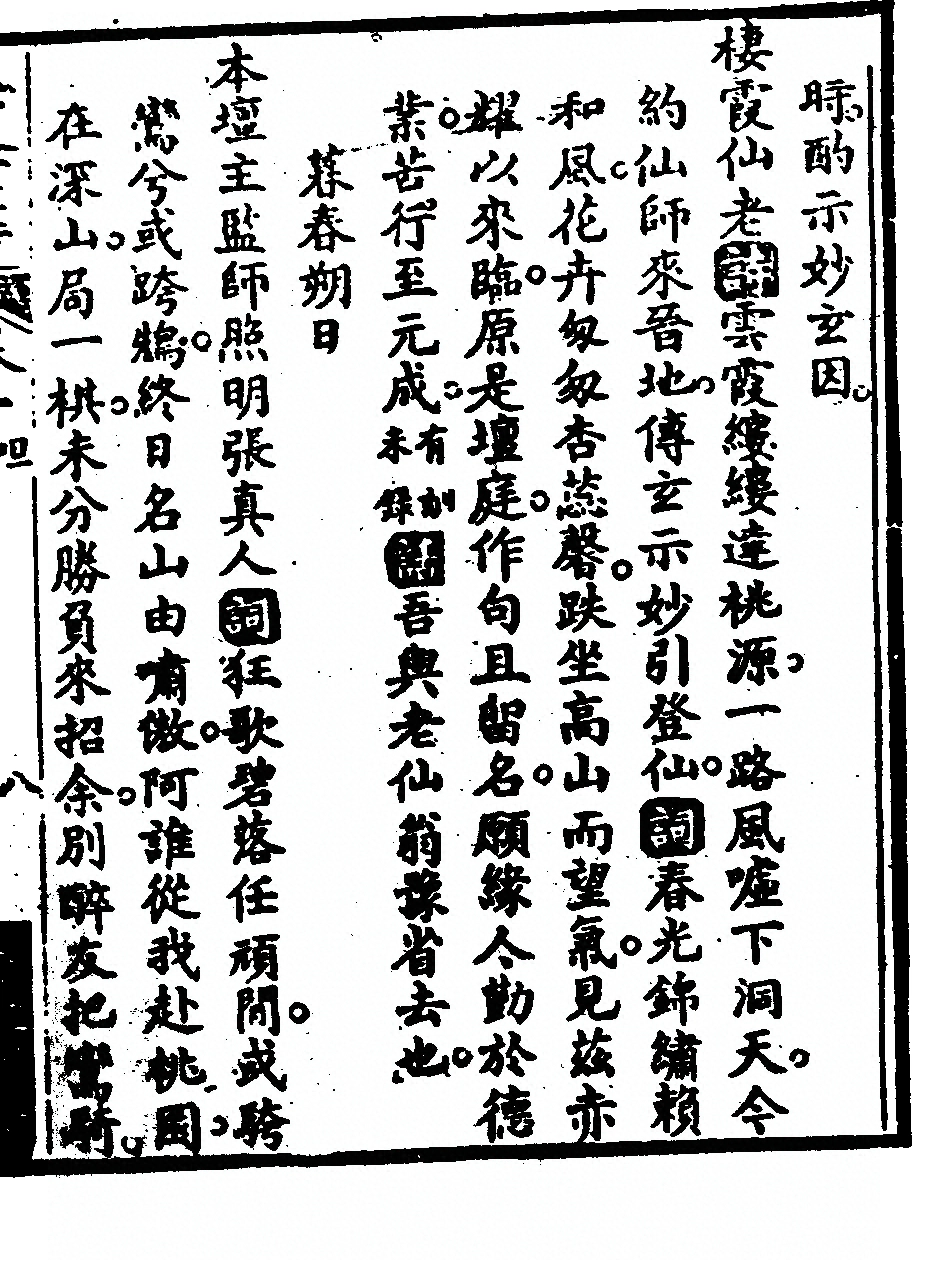 時酌示妙玄因
棲霞仙老詩雲霞縷縷達桃源一路風噓下洞天今
約仙師來晉地傳玄示妙引登仙詞春光錦繡賴
和風花卉匆匆杏蕊馨跌坐高山而望氣見茲赤
耀以來臨原是壇庭作句且留名願緣今勤於德
業苦行至元成有刻未錄吾與老仙翁豫省去也
暮春朔日
本壇主監師照明張真人詞狂歌碧落任頑閒或騎
鸞兮或跨鷯終日名山由嘯傲阿誰從我赴桃園
在深山局一棋未分勝負來招余別醉友把鸞騎